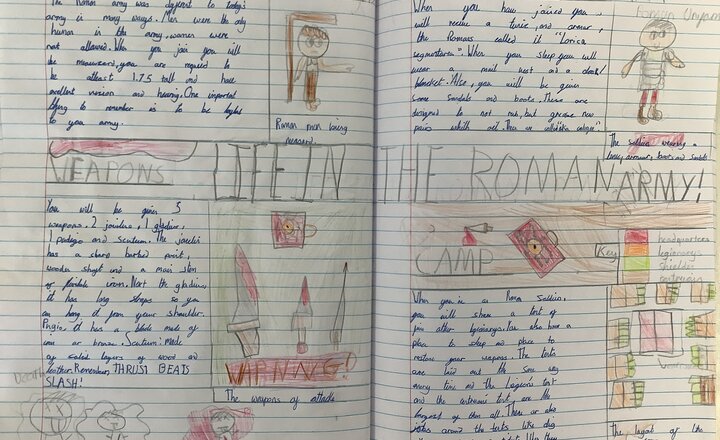 The Roman army was different to today's
army in many ways. Men were the only
human in the army, women were
not allowed. When you join you will
be measured, you are required to
be atleast 1.75 tall and have
excellent vision and hearing. One important
thing to remember is to be loyal
to you army.
Roman man being
measured.
When you have joined you
will receive a tunic, and armour,
the Romans called it "Lorica
segmentara". When you sleep you will
wear a mail vest and a cloak/
blancket. Also, you will be given
some sandals and boots. These are
designed to not rub, but grease new
pairs with oil. They are called
Roman
The soldier wearing a
tunic, armour, boots and sandals
LIFE IN THE ROMAN ARMY!
WEAPONS
You will be given 5
weapons, 2 javelins, 1 gladius,
1 and Scutum. The javelin
has a sharp barbed point,
wooden and a main
of flexible iron. Next the gladius,
it has long straps so you
can hang it from your shoulder.
Pugio, it has a blade made of
or bronze. Scutum: made
of solid layers of wood and
leather. Remember, THRUST BEATS
SLASH!
Death
WARNING!
The weapons of attack
CAMP
Key
headquarters
legionarys
shields
centurion
When you're a Roman Soldier,
you will share a tent of
five other legionarys. You also have a
place to sleep and place to
restore your weapons. The tents
are laid out the same way
every time and The Legions tent
and the centurions tent are the
largest of them all. There are also
jobs around the tents like dig
The layout of the